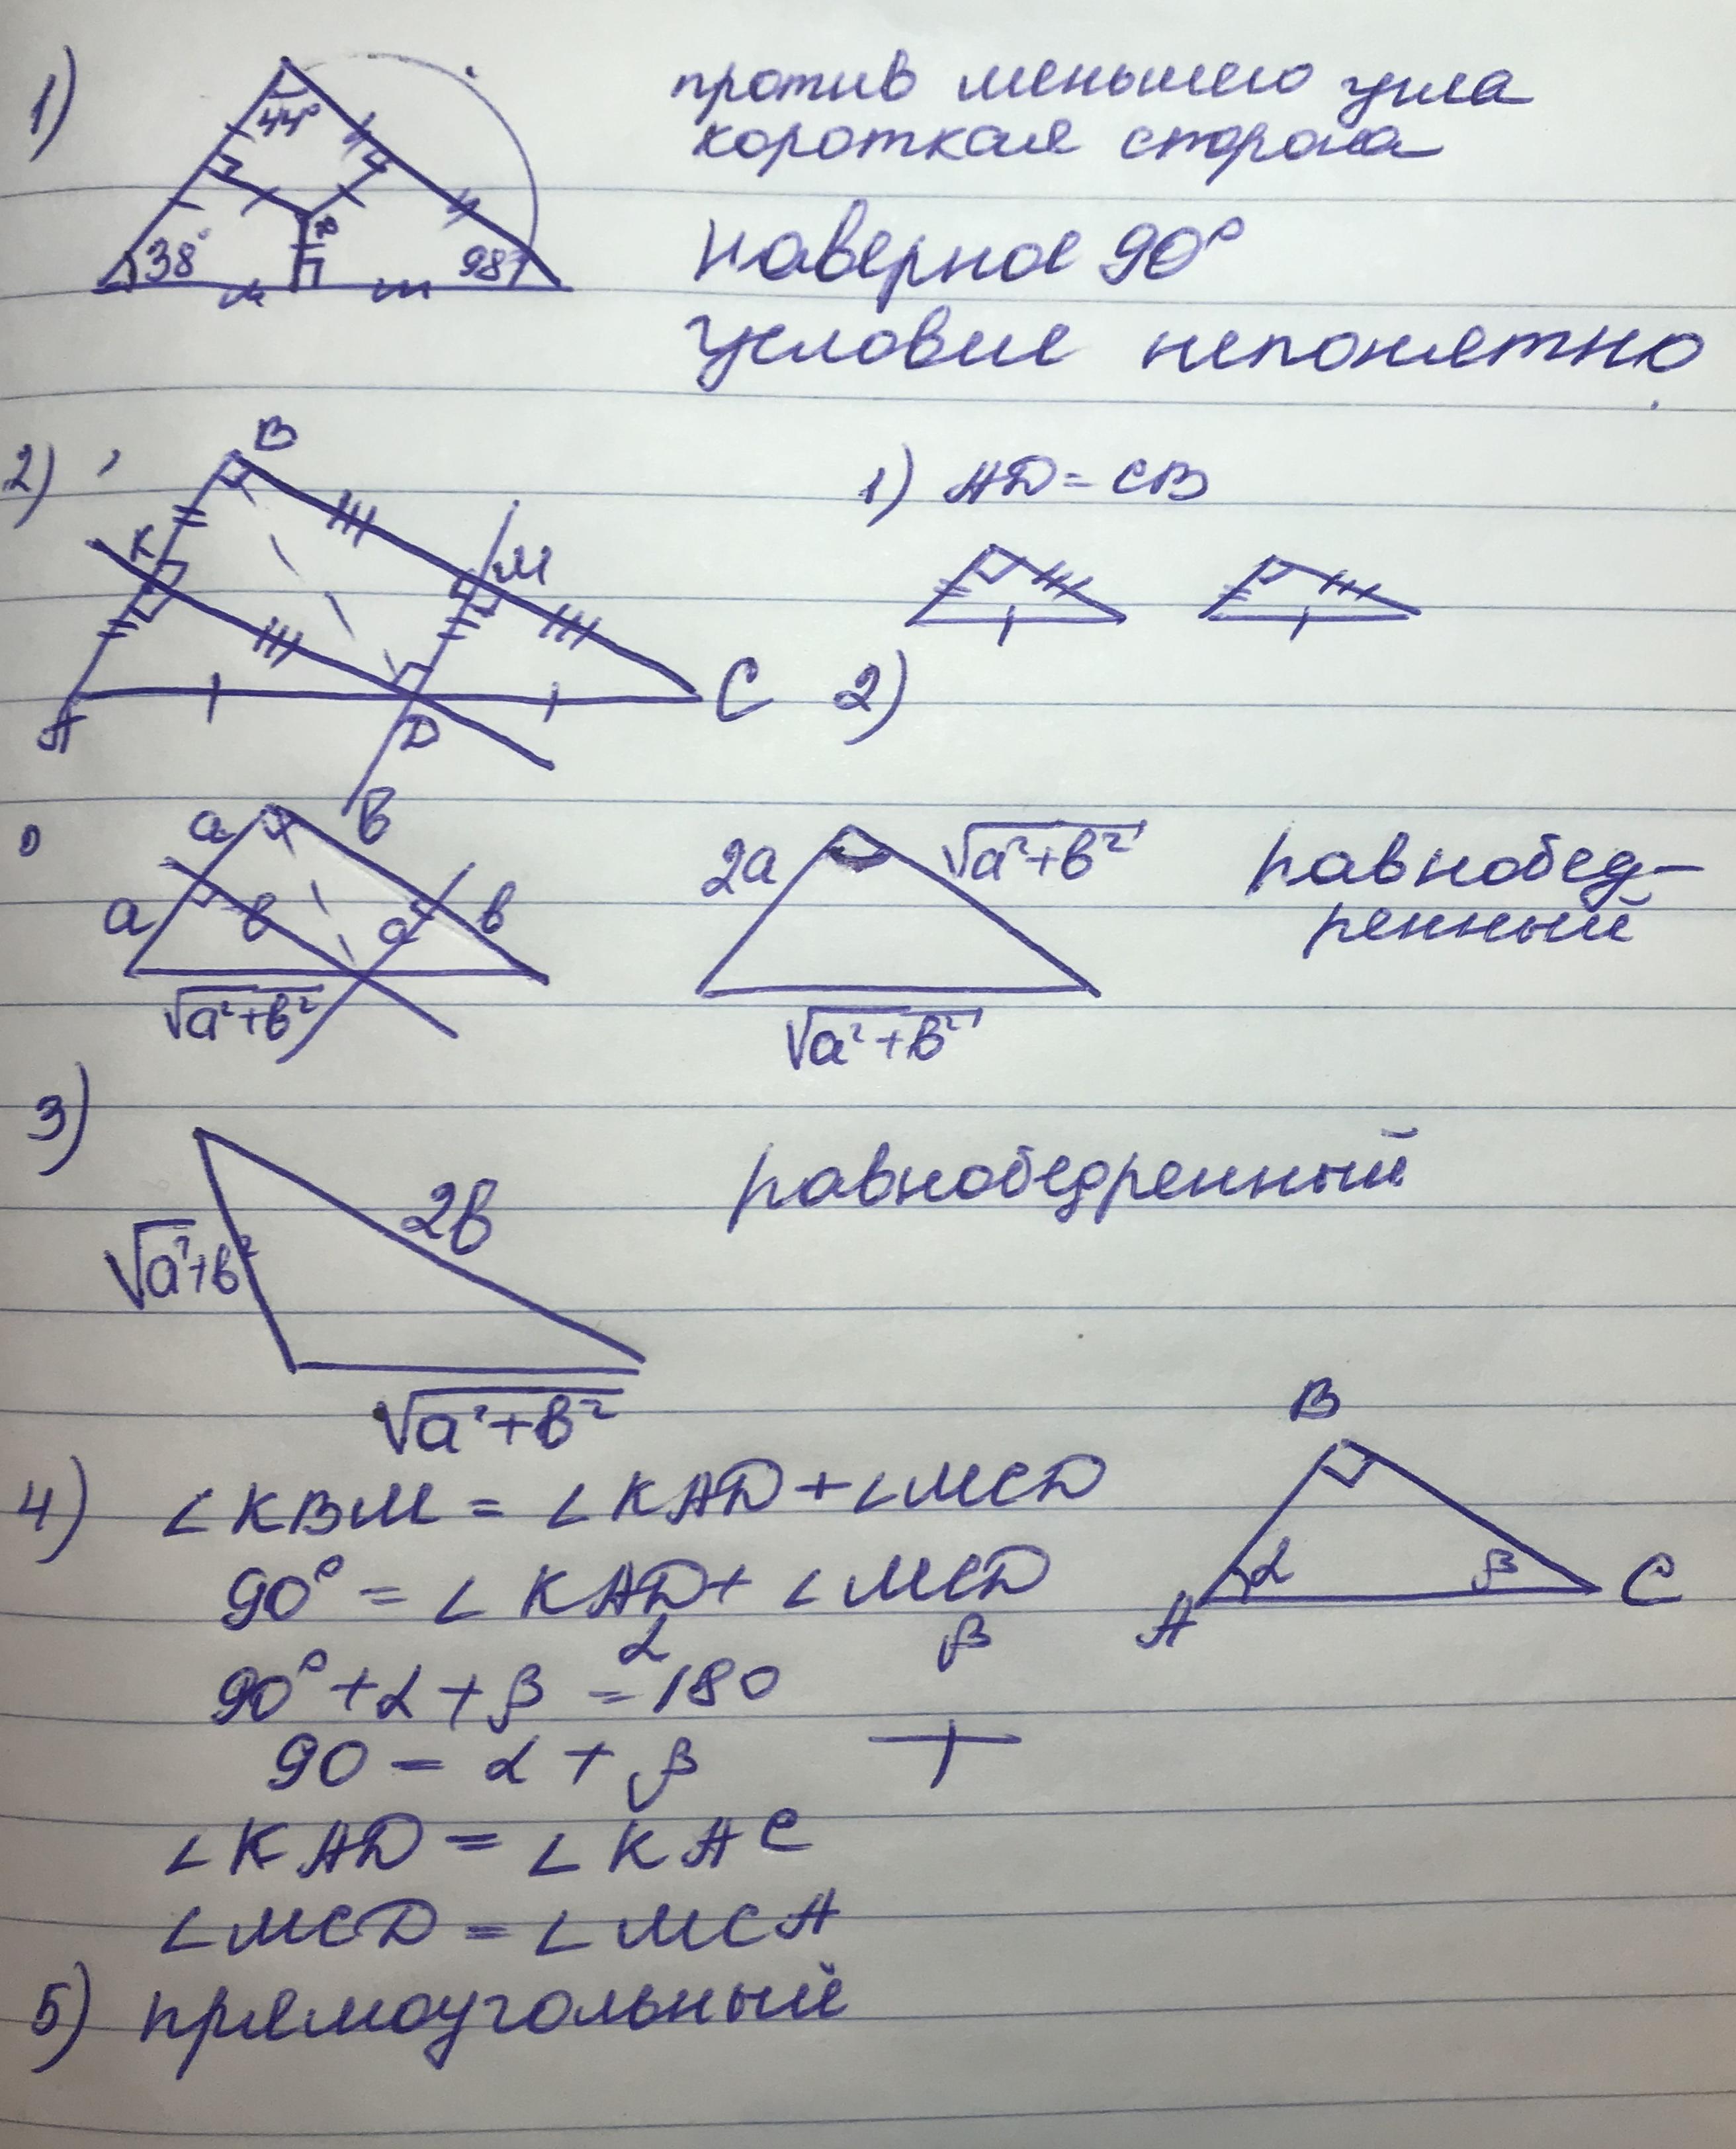 1)
44°
38°
98°
против меньшего угла
короткая сторона
наверное 90°
условие непонятно
2)
B
K
M
A
D
C
1) AD = CB
2)
a
в
a
в
a
в
√a²+в²
2a
√a²+в²
√a²+в²
равнобед-
ренный
3)
√a²+в²
2в
√a²+в²
равнобедренный
4) ∠KBM = ∠KAD + ∠MCD
90° = ∠KAD + ∠MCD
α β
90° + α + β = 180
90 = α + β
∠KAD = ∠KAC
∠MCD = ∠MCA
B
A
α
β
C
5) прямоугольный